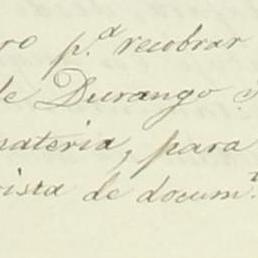 ro p.ª recobrar
de Durango
materia, para
vista de docum.ᵗ